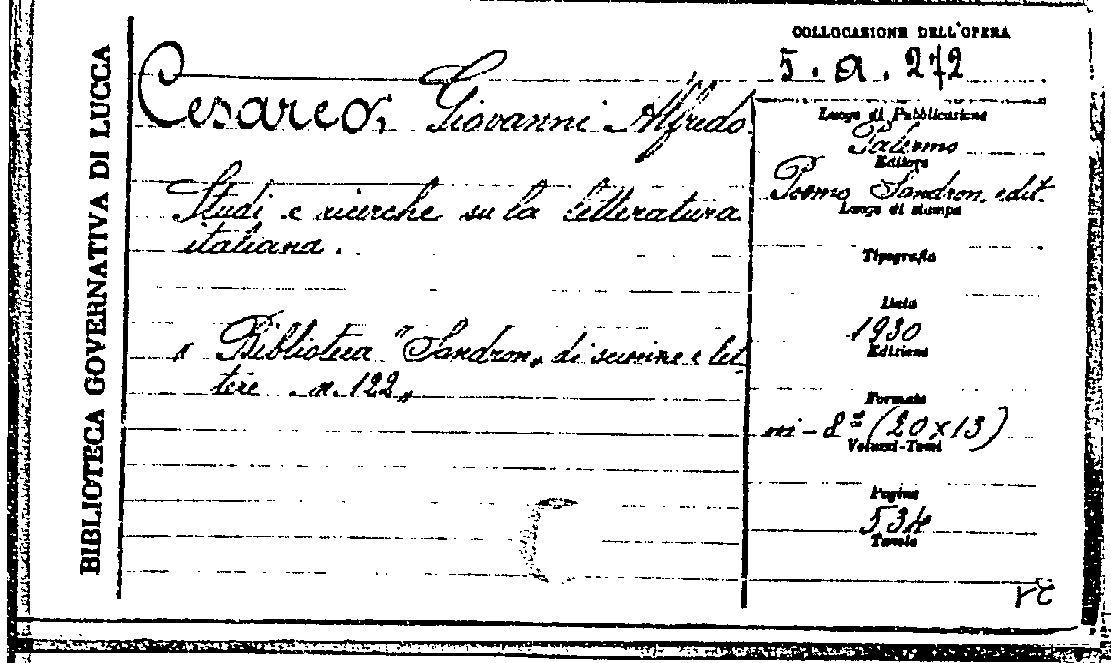 BIBLIOTECA GOVERNATIVA DI LUCCA
Cesareo, Giovanni Alfredo
Studi e ricerche su la letteratura
italiana.
« Biblioteca "Sandron„ di scienze e let
tere . n. 122„
COLLOCAZIONE DELL'OPERA
5. a. 272
Luogo di Pubblicazione
Palermo
Editore
Sandron, edit.
Luogo di stampa
Tipografia
Data
1930
Edizione
Formato
in-8° (20x13)
Volumi-Tomi
Pagine
534
Tavole